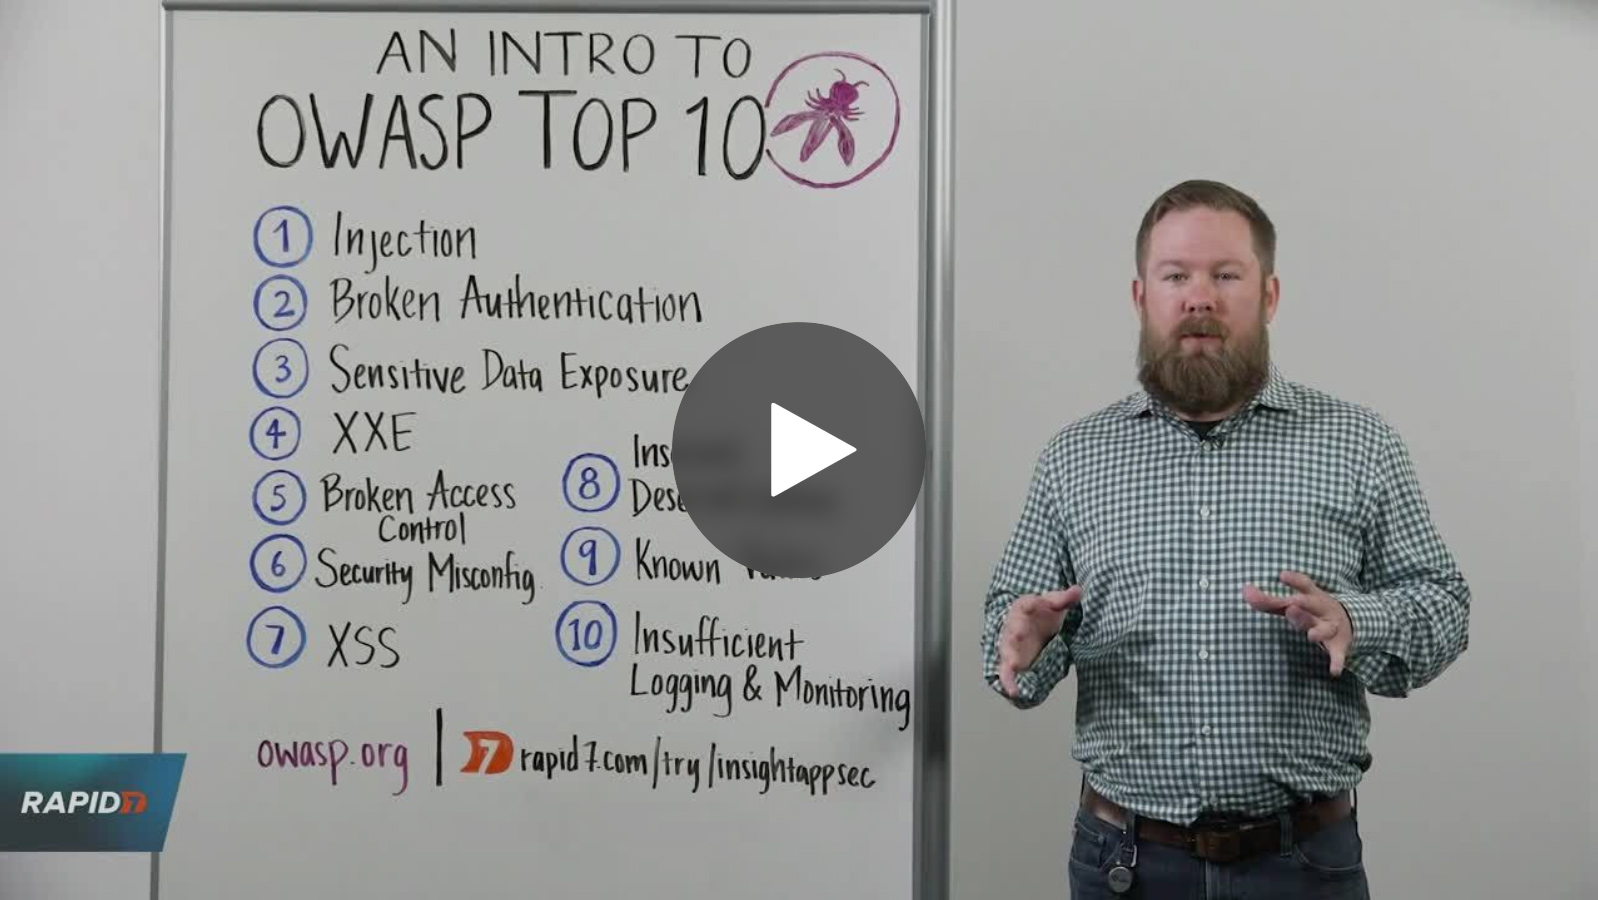 AN INTRO TO
OWASP TOP 10
1 Injection
2 Broken Authentication
3 Sensitive Data Exposure
4 XXE
5 Broken Access
Control
6 Security Misconfig.
7 XSS
8
9 Known
10 Insufficient
Logging & Monitoring
owasp.org | 7 rapid7.com/try/insightappsec
RAPID7